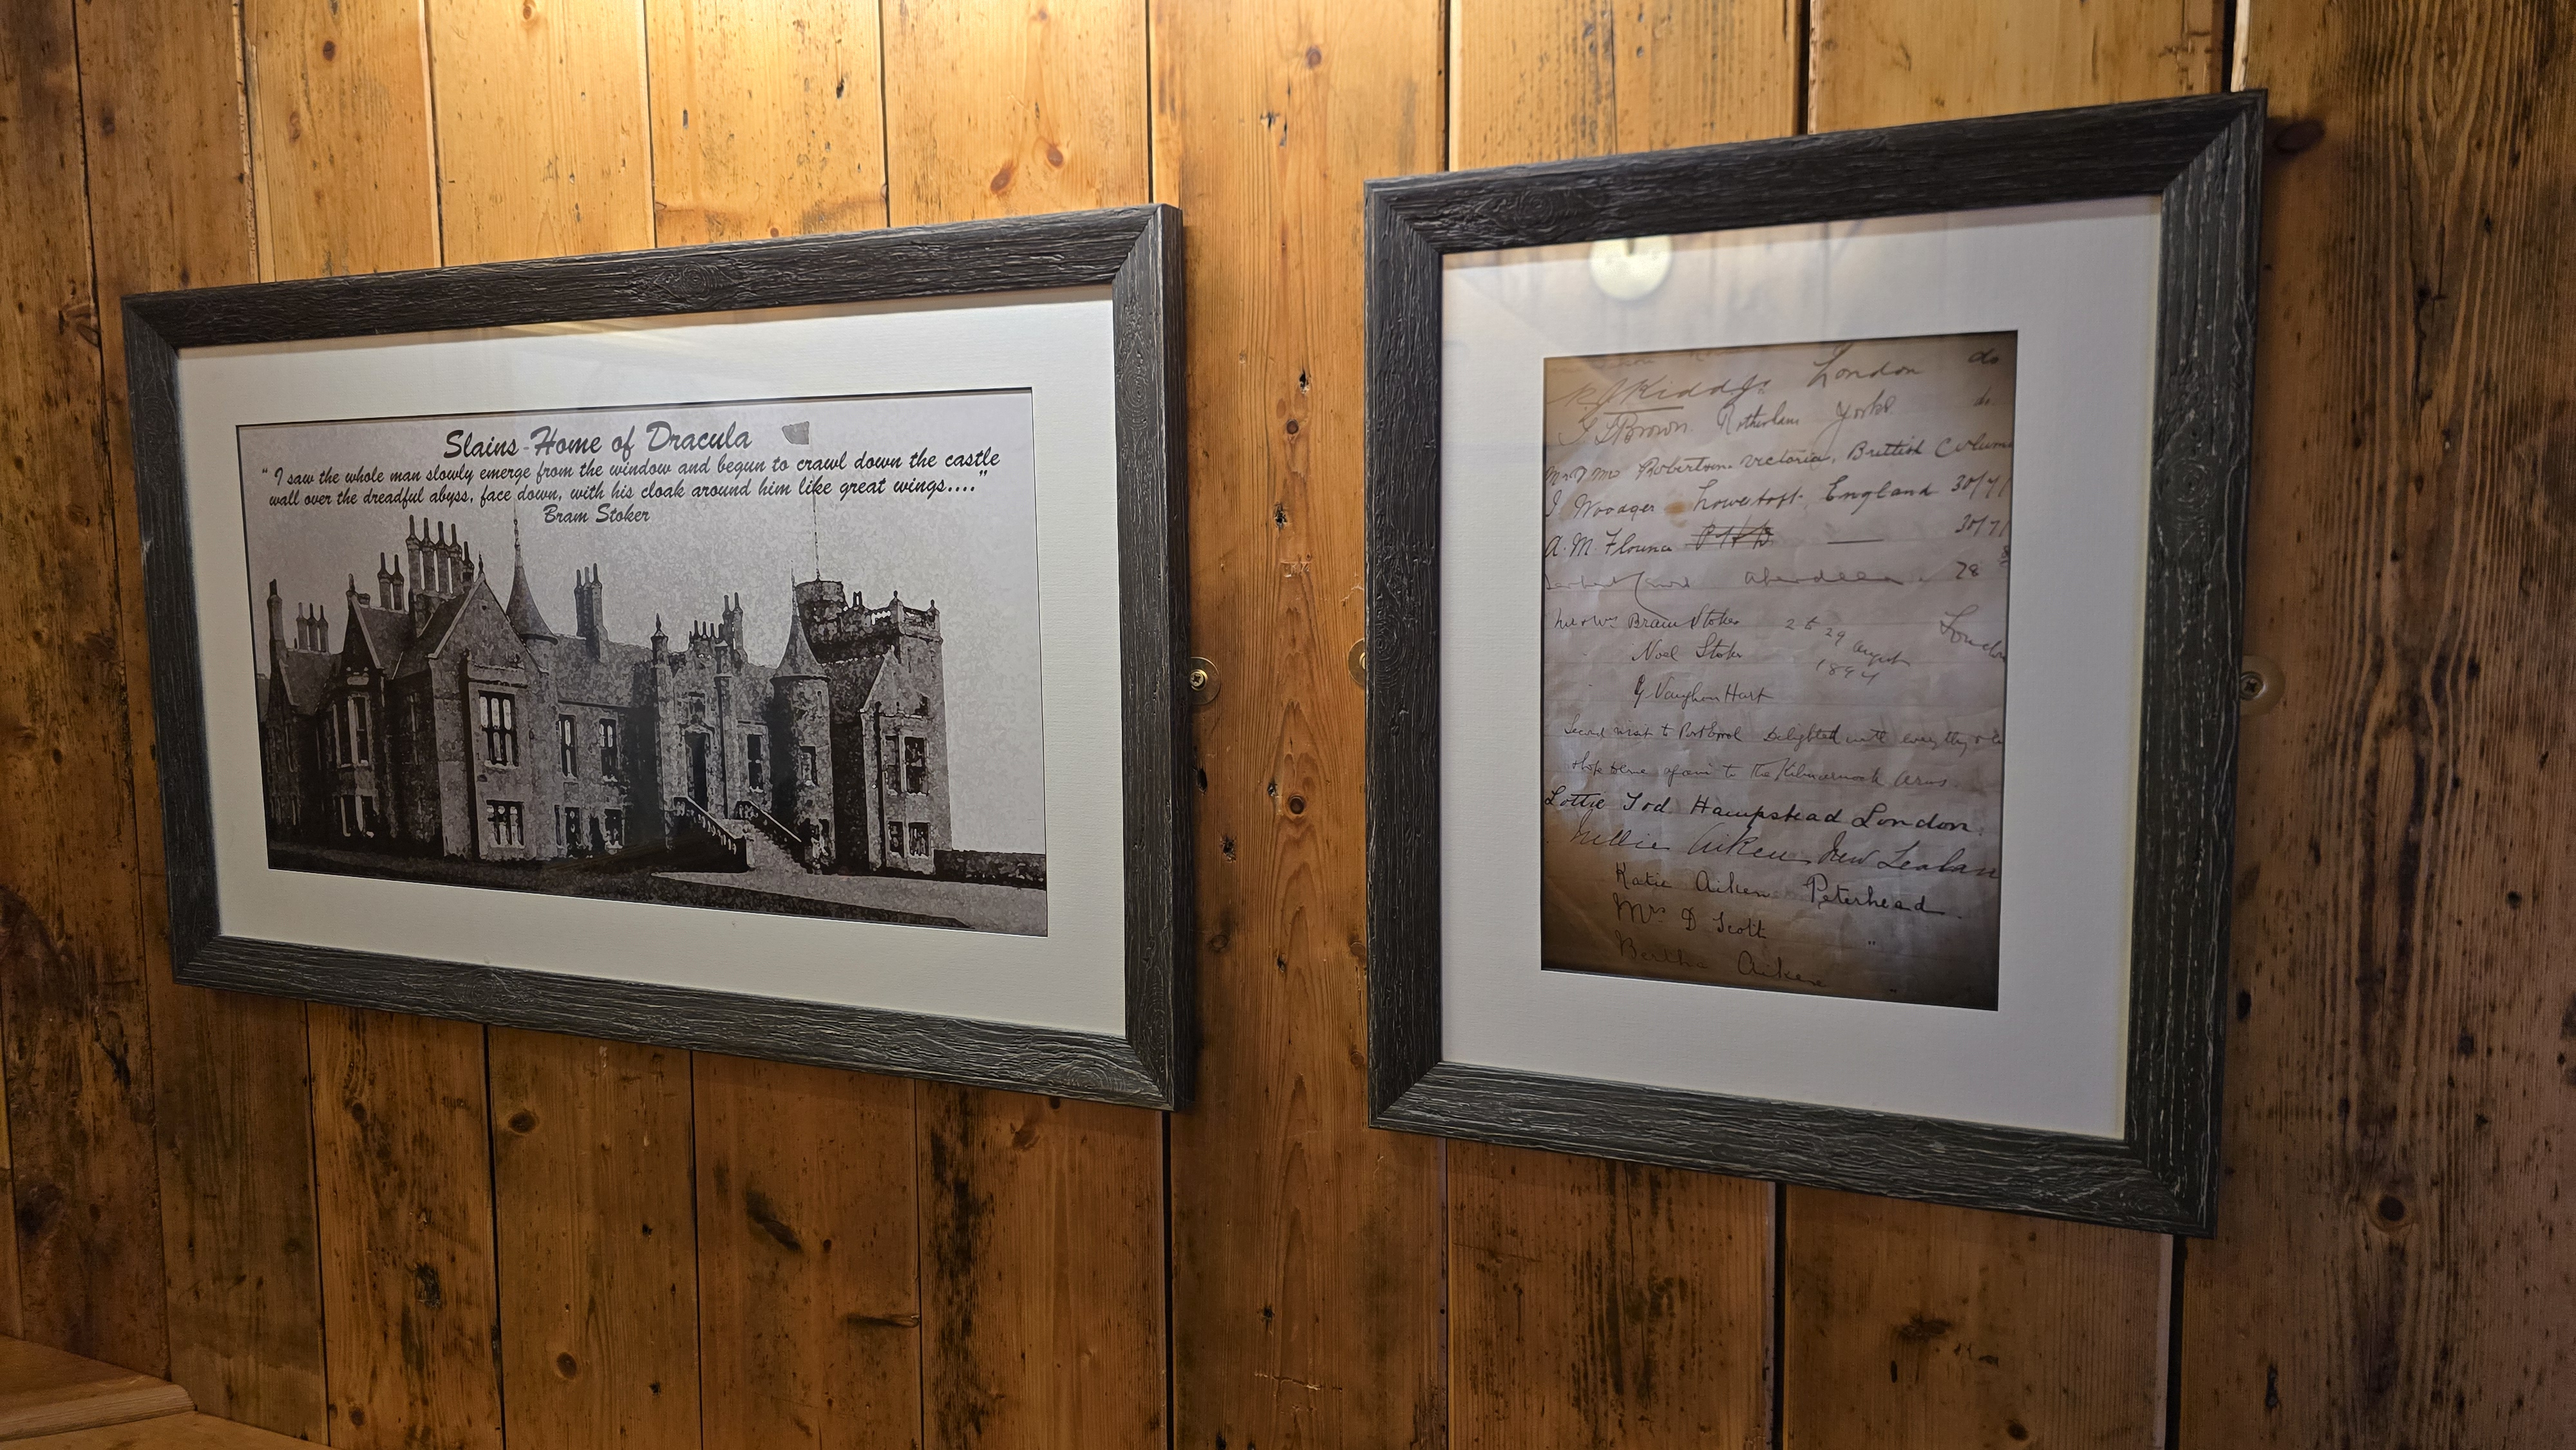 Slains - Home of Dracula
" I saw the whole man slowly emerge from the window and begun to crawl down the castle
wall over the dreadful abyss, face down, with his cloak around him like great wings...."
Bram Stoker
Kidd Jr London do
Brown Yorks do
Robertson. Victoria, British Colum
J Woodger Lowestoft. England 30/7/
A. M. 30/7/
Aberdeen. 28
Mr & Mrs Bram Stoker 29 August London
Noel Stoker 1894
Vaughan Hart
Second visit to Port Erroll Delighted with everything &
again to the Kilmarnock Arms.
Lottie Tod Hampstead London.
Nellie Aiken New Zealan
Katie Aiken Peterhead.
Mrs D Scott "
Bertha Aiken "